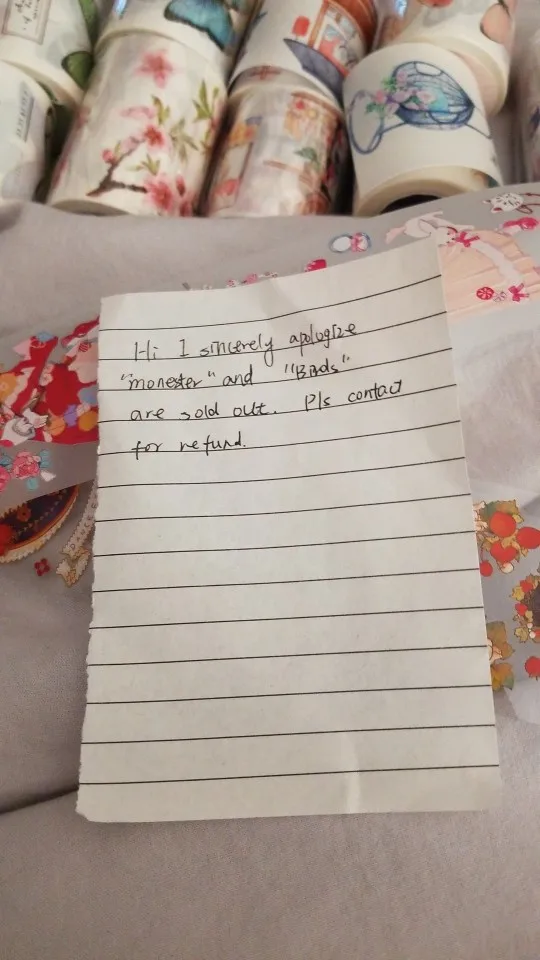 Hi I sincerely apologize
"monester" and "Birds"
are sold out. Pls contact
for refund.